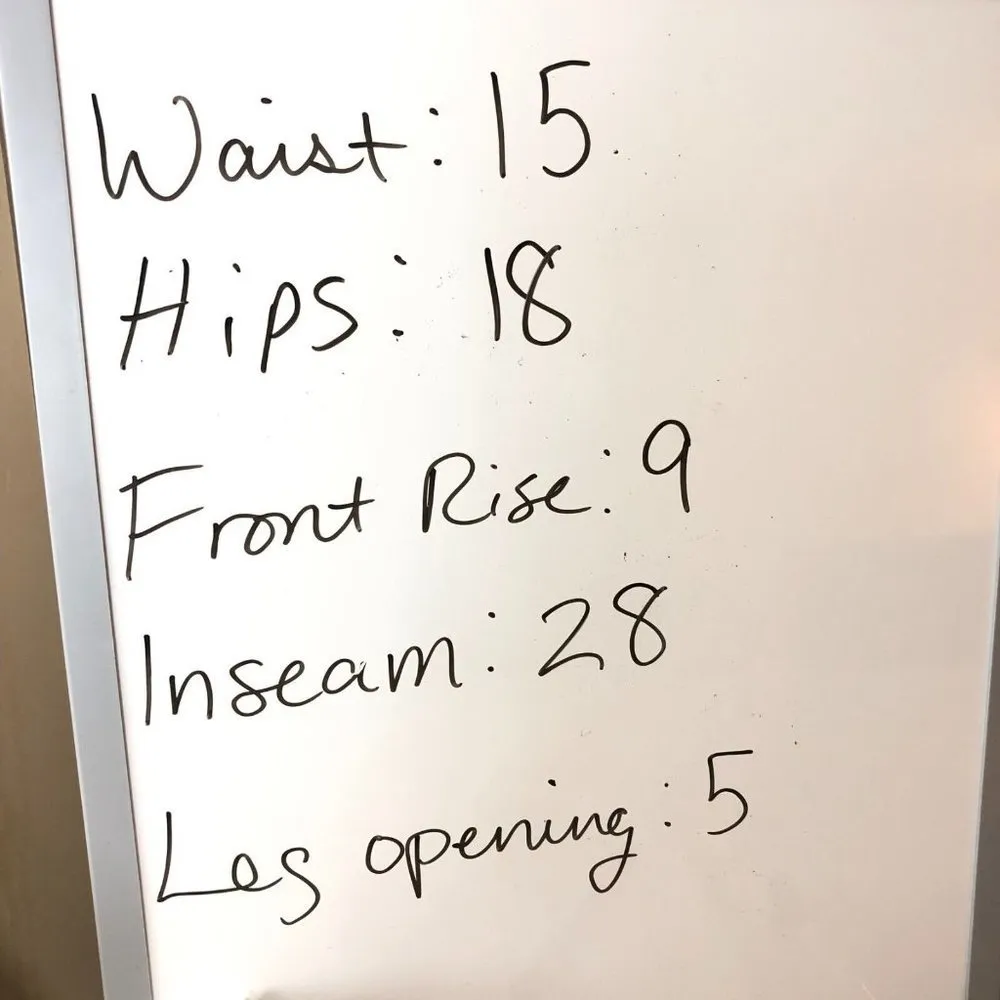 Waist: 15
Hips: 18
Front Rise: 9
Inseam: 28
Leg opening: 5